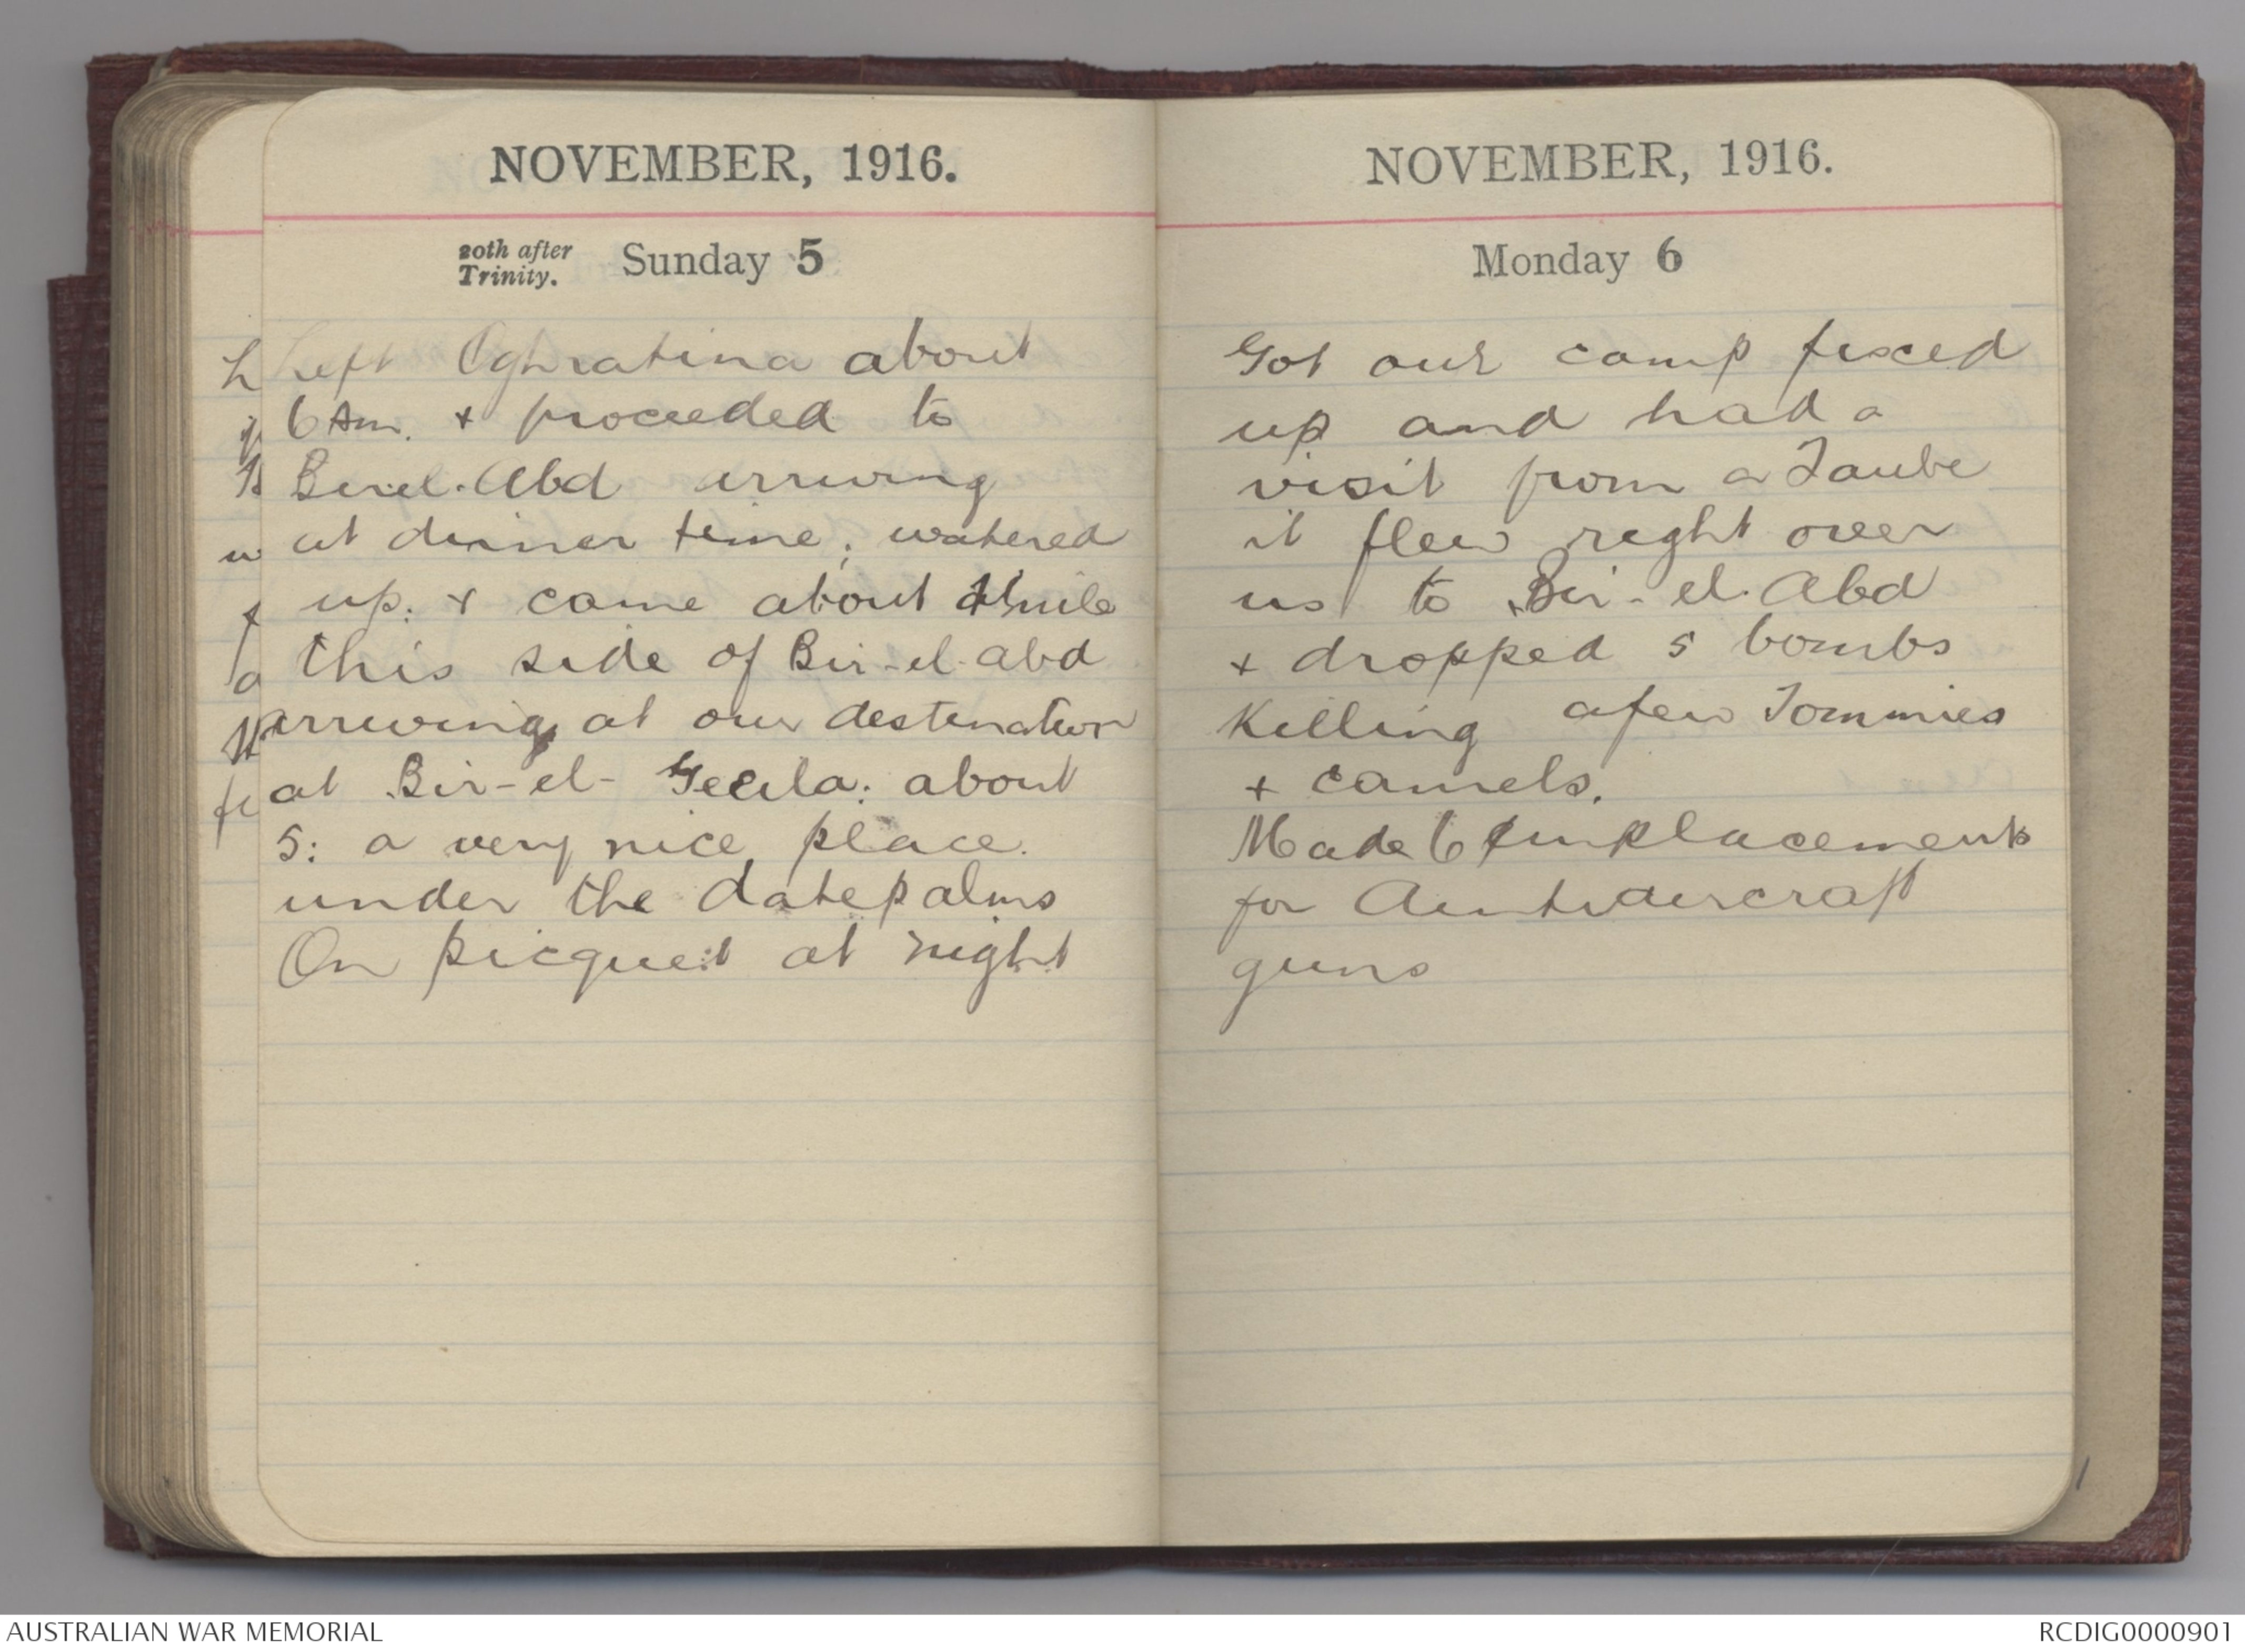 NOVEMBER, 1916.
20th after Trinity. Sunday 5
Left Oghratina about
6 Am. + proceeded to
Bir el. Abd arriving
at dinner time; watered
up: + came about mile
this side of Bir-el-abd
arriving at our destination
at Bir-el- about
5: a very nice place.
under the datepalms
On picquet at night
NOVEMBER, 1916.
Monday 6
Got our camp fixed
up and had a
visit from a Taube
it flew right over
us to Bir-el.Abd
+ dropped 5 bombs
Killing afew Tommies
+ camels.
Made 6 Emplacements
for Antiaircraft
guns
AUSTRALIAN WAR MEMORIAL
RCDIG0000901